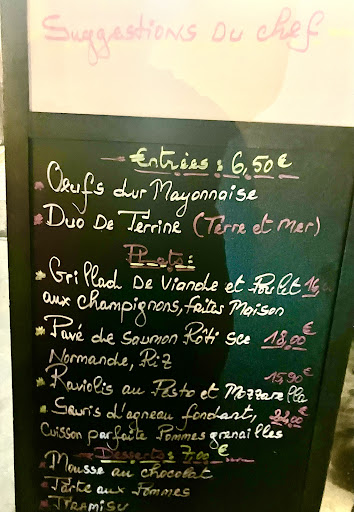 Suggestions Du chef
Entrées : 6,50€
Oeufs dur Mayonnaise
Duo De Terrine (Terre et Mer)
Plats :
Grillad De Viande et Poulet
aux champignons, faites Maison
Pavé de saumon Rôti sce 18,00€
Normande, Riz
15,90€
Raviolis au Pesto et Mozzarella
Souris d'agneau fondant,
Cuisson parfaite Pommes grenailles
Desserts : 7,00€
Mousse au chocolat
Tarte aux Pommes
Tiramisu